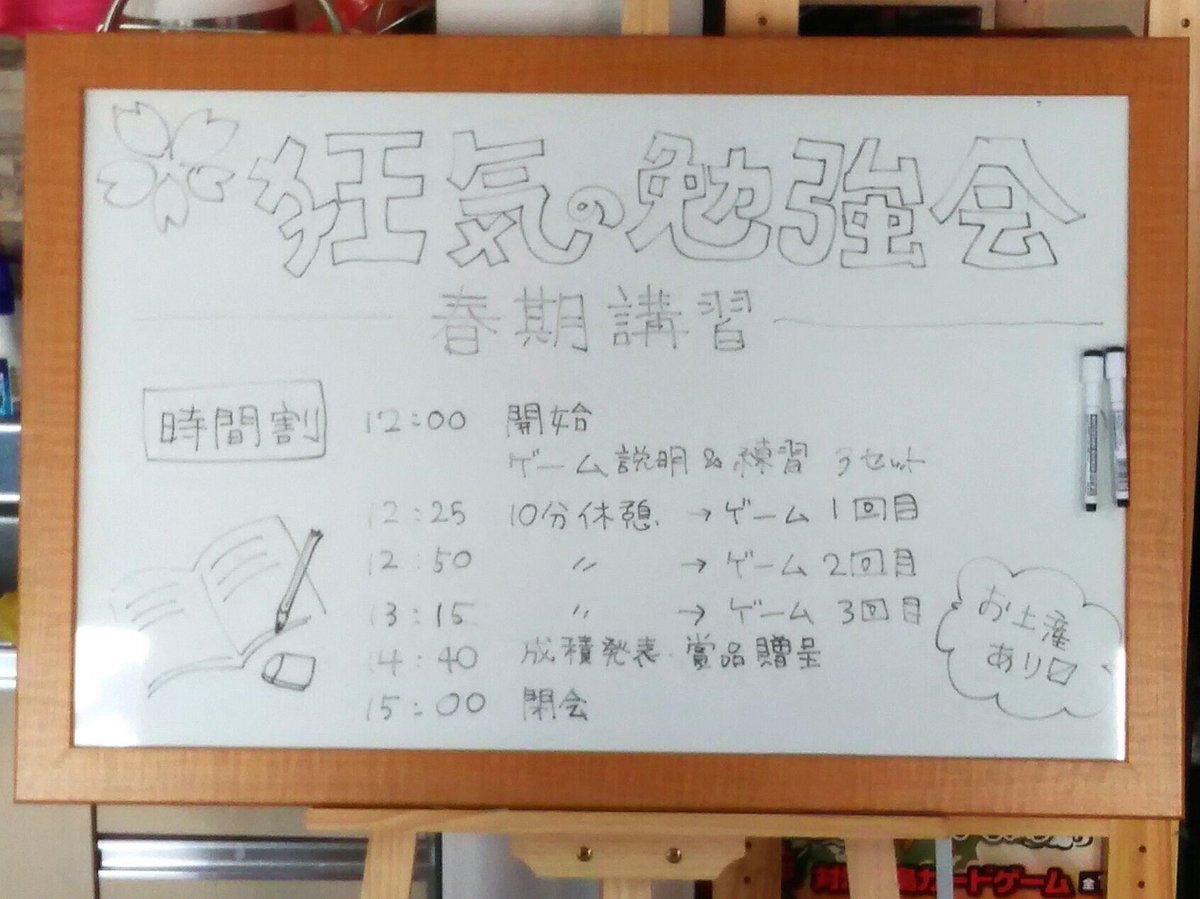 狂気の勉強会
春期講習
時間割
12:00 開始
ゲーム説明&練習 3セット
12:25 10分休憩 → ゲーム 1回目
12:50 〃 → ゲーム 2回目
13:15 〃 → ゲーム 3回目
14:40 成積発表・賞品贈呈
15:00 閉会
お土産
あり〼
カードゲーム